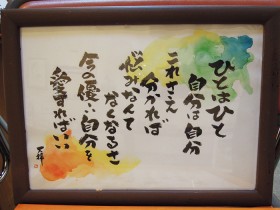 ひとはひと
自分は自分
これさえ
分かれば
悩みなんて
なくなるさ
今の優しい自分を
愛すればいい